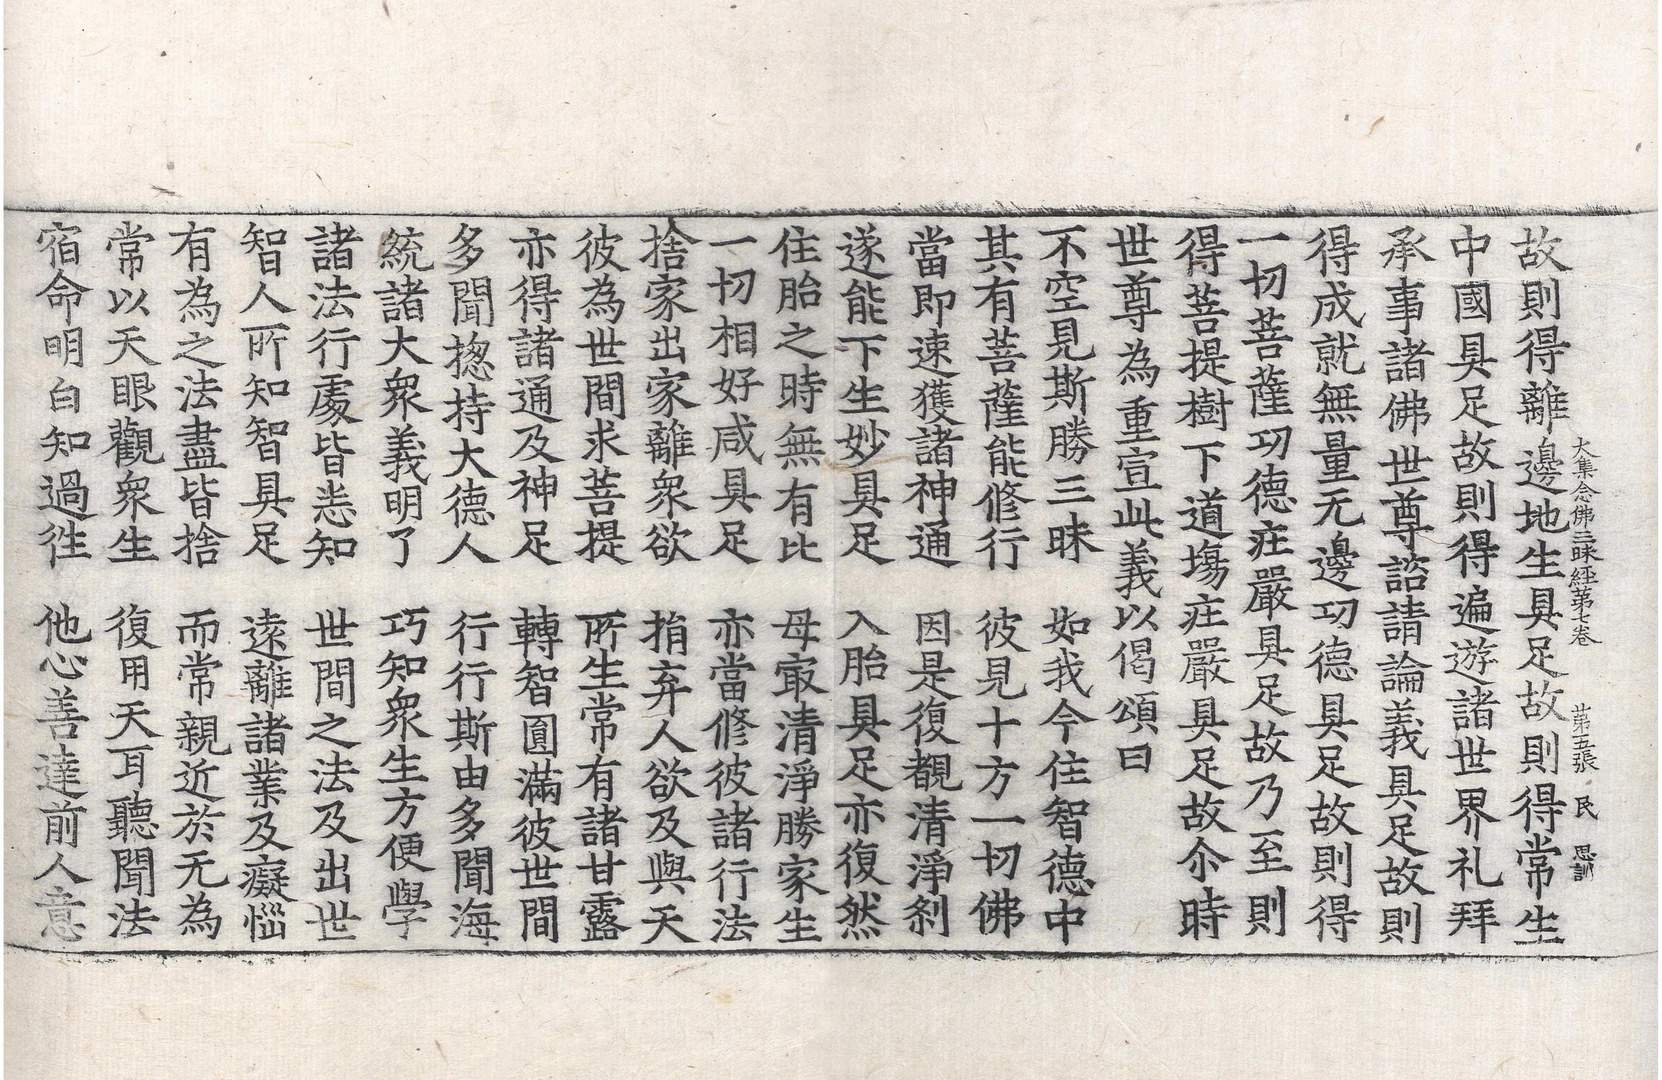 大集念佛三昧経第七卷 第五張 民 思訓
故則得離邊地生具足故則得常生
中國具足故則得遍遊諸世界礼拜
承事諸佛世尊諮請論義具足故則
得成就無量无邊功德具足故則得
一切菩薩功德庄嚴具足故乃至則
得菩提樹下道塲庄嚴具足故尒時
世尊為重宣此義以偈頌曰
不空見斯勝三昧 如我今住智德中
其有菩薩能修行 彼見十方一切佛
當即速獲諸神通 因是復覩清淨刹
遂能下生妙具足 入胎具足亦復然
住胎之時無有比 母㝡清淨勝家生
一切相好咸具足 亦當修彼諸行法
捨家出家離衆欲 捐弃人欲及與天
彼為世間求菩提 所生常有諸甘露
亦得諸通及神足 轉智圓滿彼世間
多聞揔持大德人 行行斯由多聞海
統諸大衆義明了 巧知衆生方便學
諸法行處皆悉知 世間之法及出世
智人所知智具足 逺離諸業及癡惱
有為之法盡皆捨 而常親近於无為
常以天眼觀衆生 復用天耳聽聞法
宿命明白知過徃 他心善達前人意